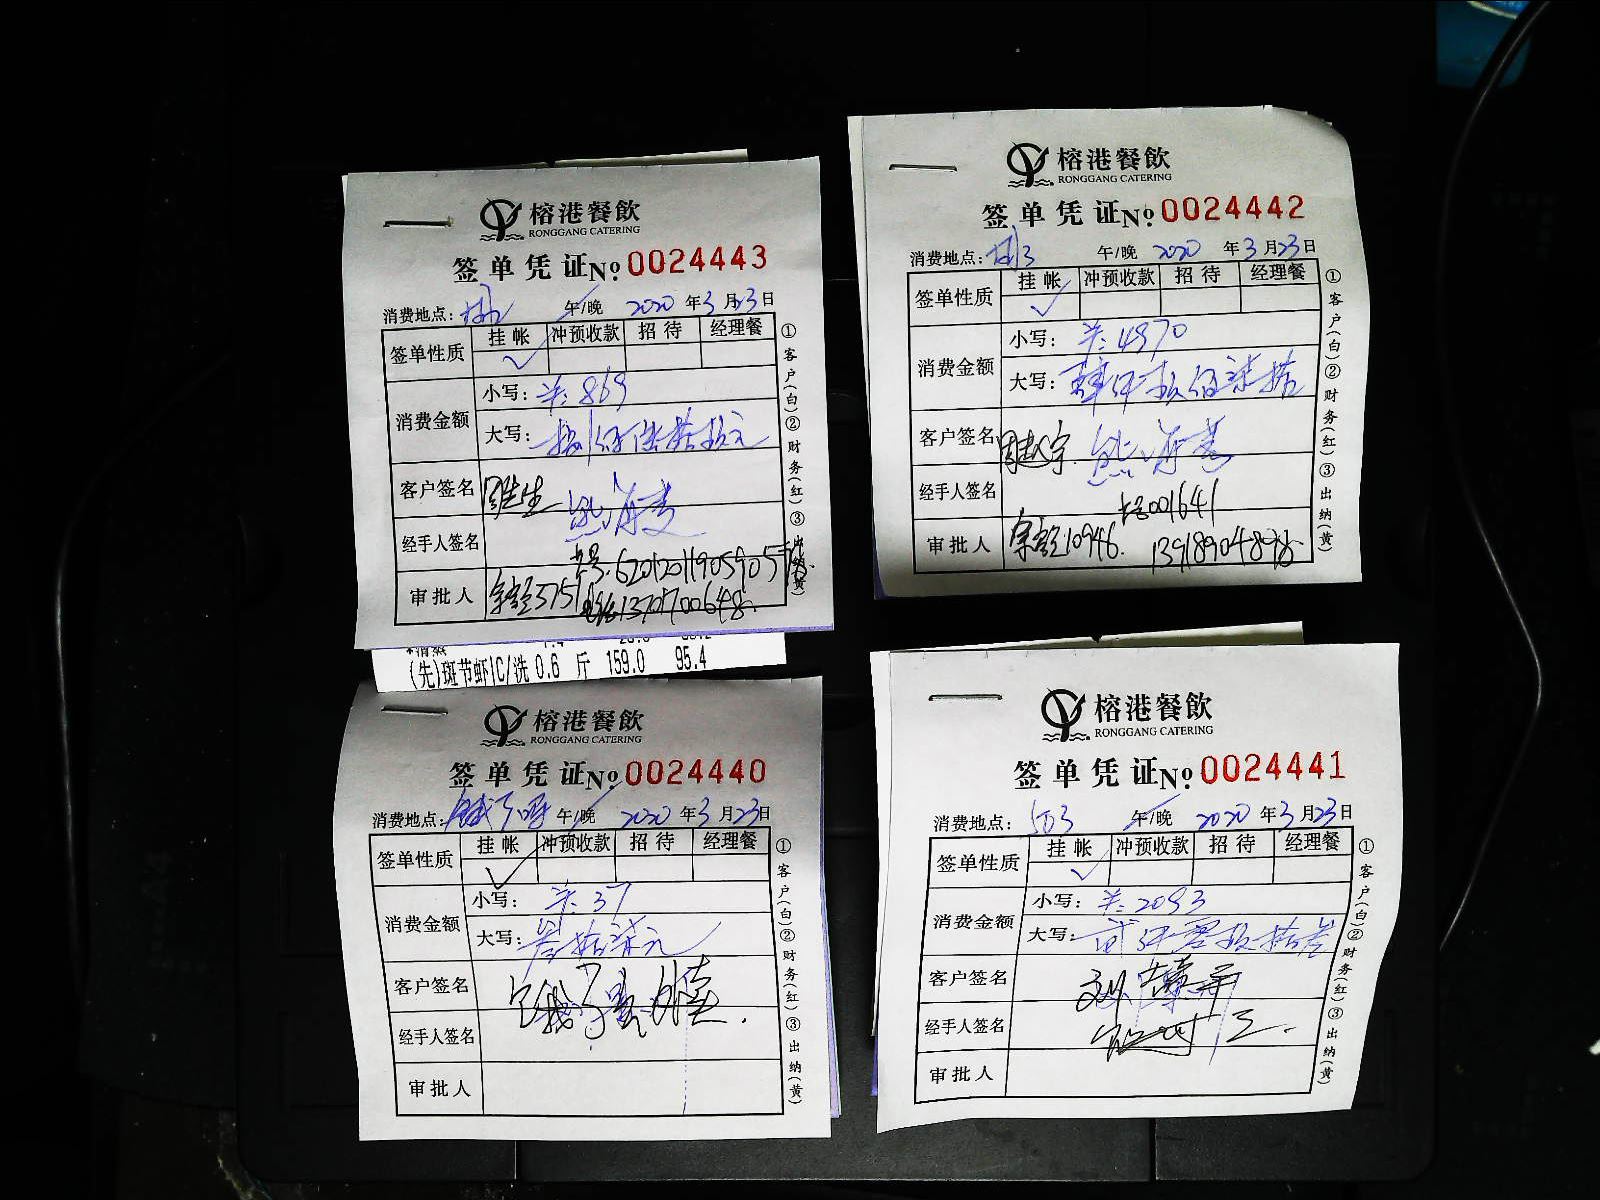 榕港餐飲
RONGGANG CATERING
签单凭证 No 0024443
消费地点: 午/晚 2020 年 3 月 23 日
签单性质 挂帐 冲预收款 招待 经理餐
消费金额
小写: 869
大写: 捌佰陆拾玖元
客户签名
经手人签名
审批人
①客户(白)②财务(红)③出纳(黄)
(先)斑节虾IC/洗 0.6 斤 159.0 95.4
榕港餐飲
RONGGANG CATERING
签单凭证 No 0024442
消费地点: 午/晚 2020 年 3 月 23 日
签单性质 挂帐 冲预收款 招待 经理餐
消费金额
小写: 4970
大写: 肆仟玖佰柒拾
客户签名
经手人签名
卡号001641
审批人 余额10946.
①客户(白)②财务(红)③出纳(黄)
榕港餐飲
RONGGANG CATERING
签单凭证 No 0024440
消费地点: 饿了吗 午/晚 2020 年 3 月 23 日
签单性质 挂帐 冲预收款 招待 经理餐
消费金额
小写: 37
大写: 叁拾柒元
客户签名
经手人签名
审批人
①客户(白)②财务(红)③出纳(黄)
榕港餐飲
RONGGANG CATERING
签单凭证 No 0024441
消费地点: 503 午/晚 2020 年 3 月 23 日
签单性质 挂帐 冲预收款 招待 经理餐
消费金额
小写: 2093
大写: 贰仟零玖拾叁
客户签名
经手人签名
审批人
①客户(白)②财务(红)③出纳(黄)